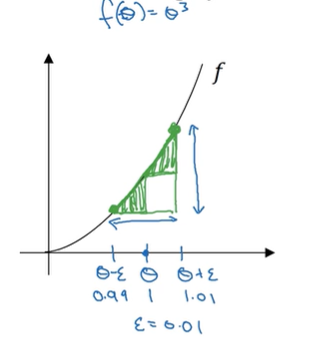 f(θ) = θ³
f
θ-ε θ θ+ε
0.99 1 1.01
ε = 0.01